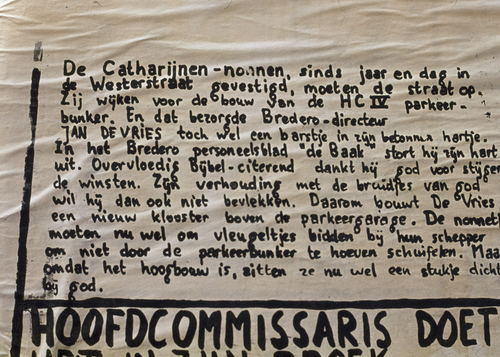 De Catharijnen-nonnen, sinds jaar en dag in
de Westerstraat gevestigd, moeten de straat op.
Zij wijken voor de bouw van de HC IV parkeer-
bunker. En dat bezorgde Bredero-directeur
JAN DE VRIES toch wel een barstje in zijn betonnen hartje.
In het Bredero personeelsblad "de Baak" stort hij zijn hart
uit. Overvloedig Bijbel-citerend dankt hij god voor stijgen
de winsten. Zijn verhouding met de bruidjes van god
wil hij dan ook niet bevlekken. Daarom bouwt De Vries
een nieuw klooster boven de parkeergarage. De nonnet
moeten nu wel om vleugeltjes bidden bij hun schepper
om niet door de parkeerbunker te hoeven schuifelen. Maa
omdat het hoogbouw is, zitten ze nu wel een stukje dicht
bij god.
HOOFDCOMMISSARIS DOET